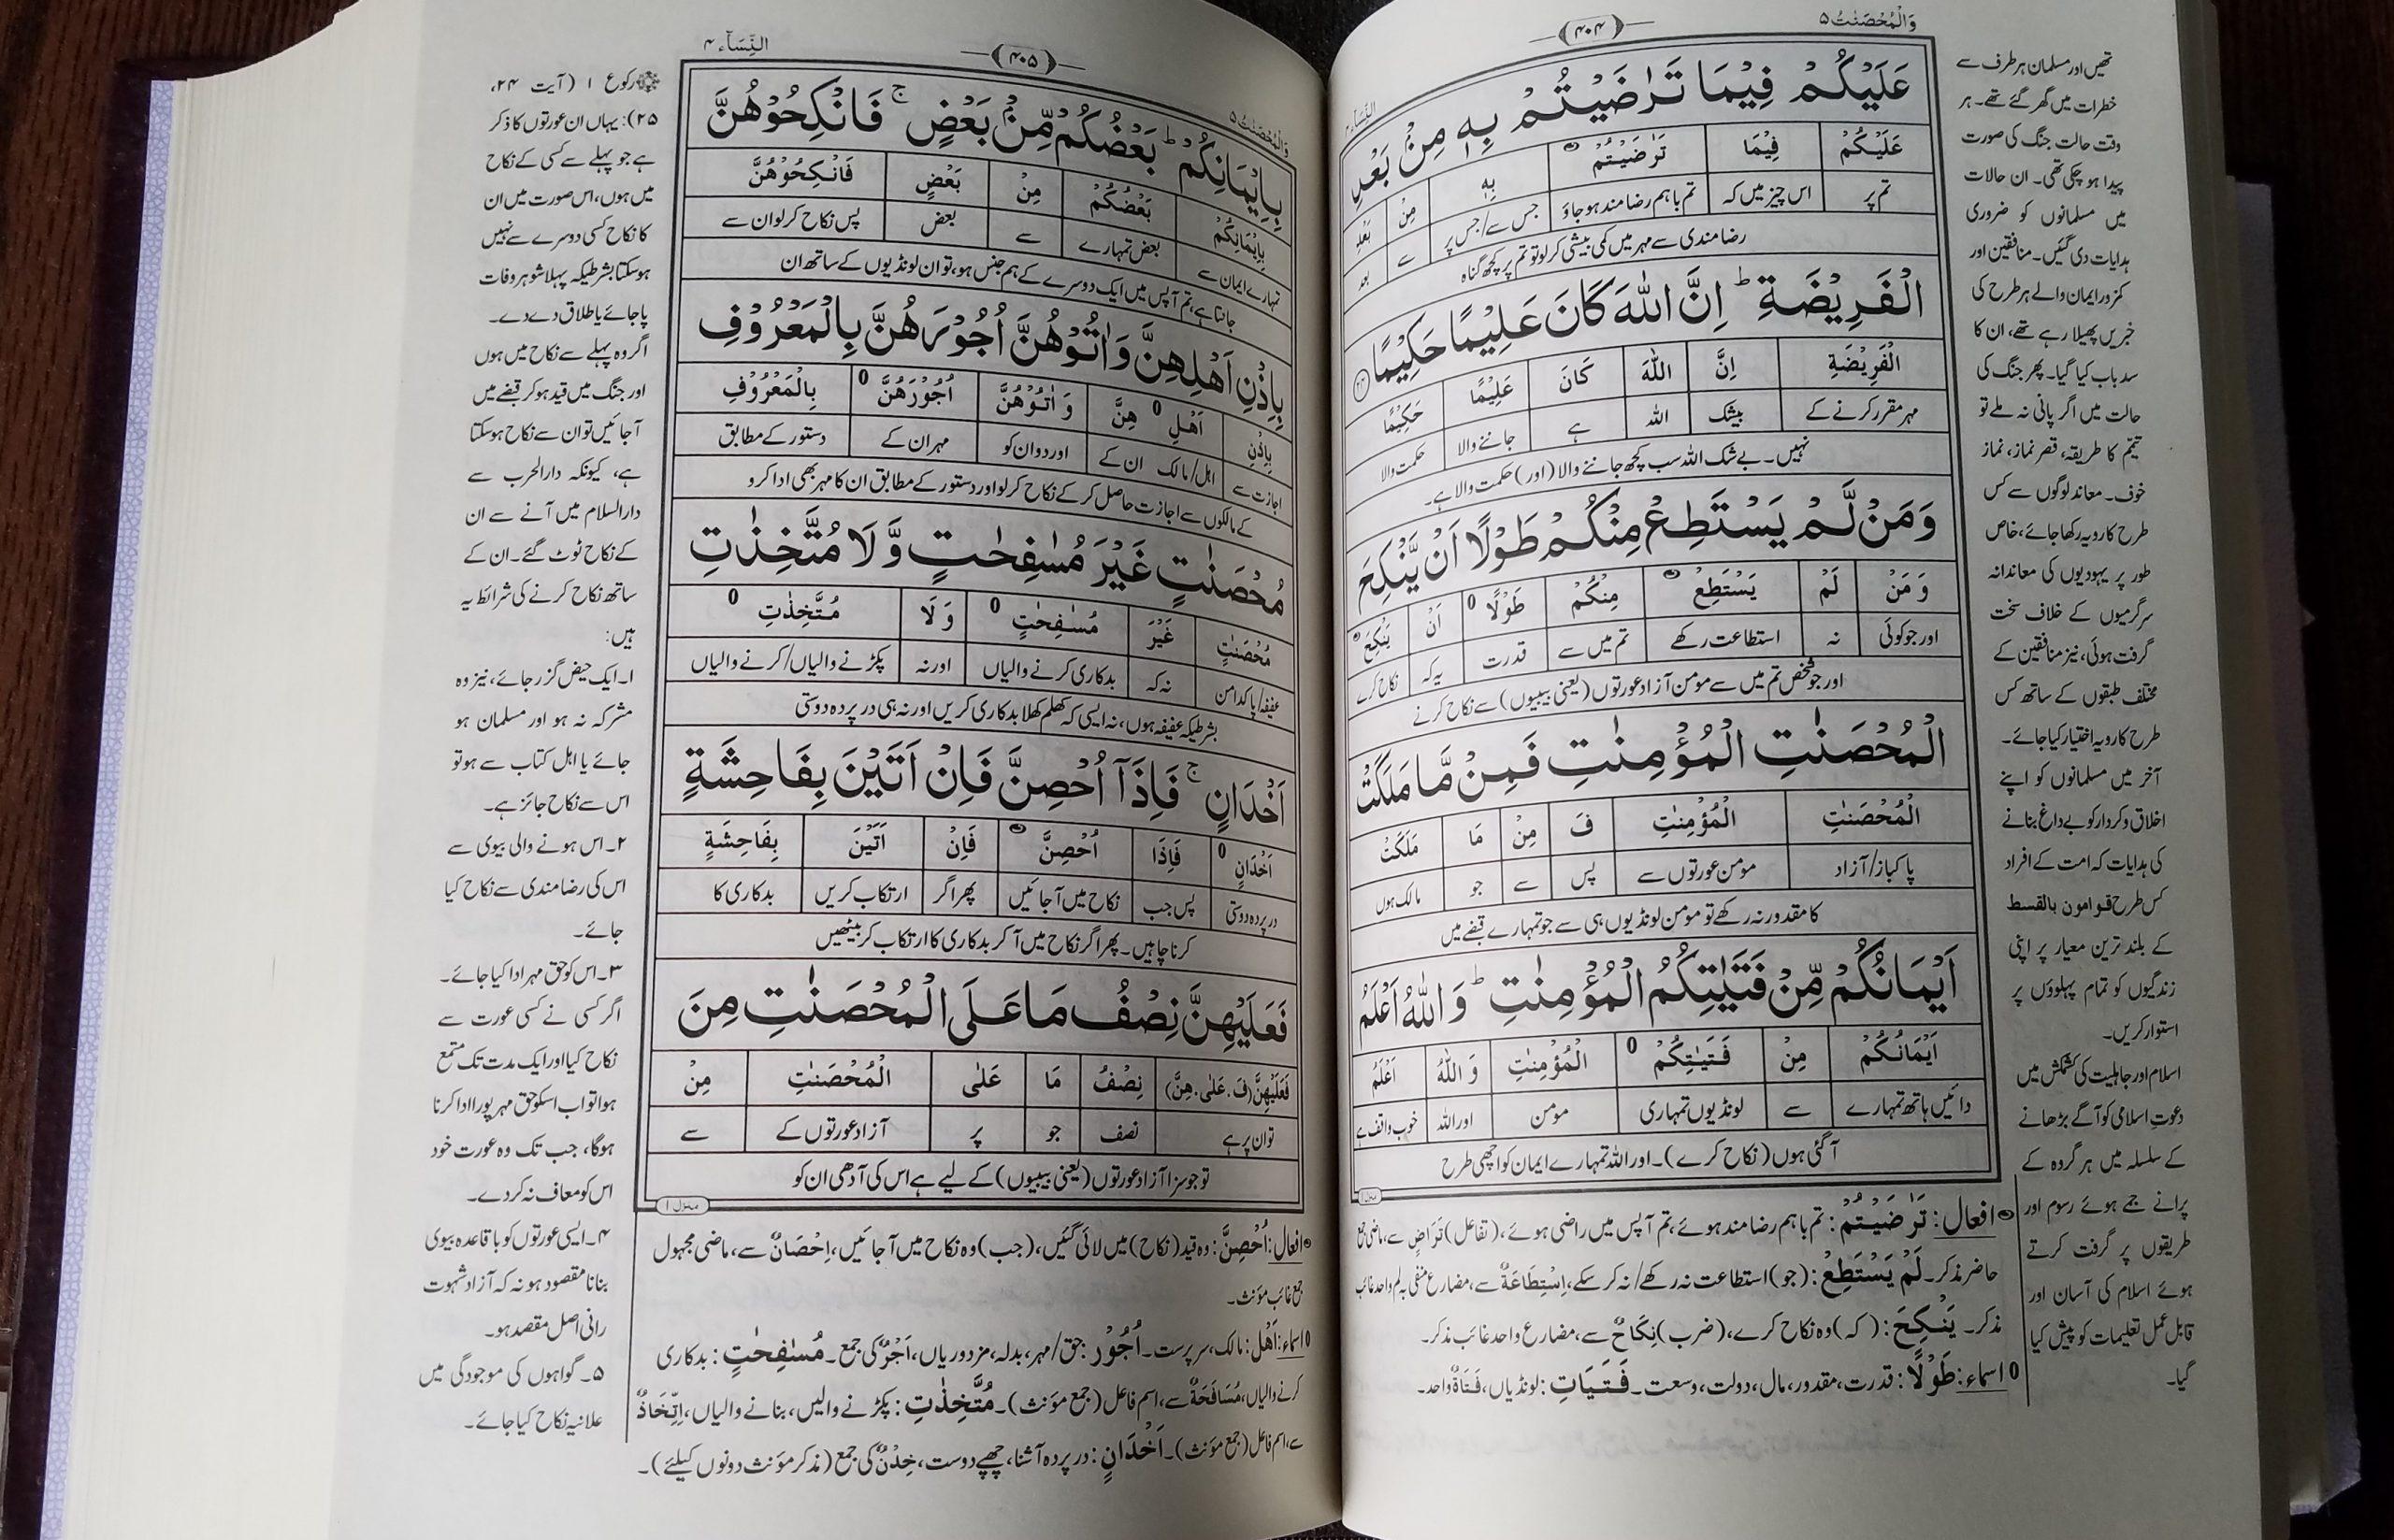 وَالْمُحْصَنٰتُ ۵
﴿۴۰۴﴾
النِّسَآء ۴
عَلَيْكُمْ فِيْمَا تَرٰضَيْتُمْ بِهٖ مِنْۢ بَعْدِ
عَلَيْكُمْ فِيْمَا تَرٰضَيْتُمْ بِهٖ مِنْ بَعْدِ
تم پر اس چیز میں کہ تم باہم رضامند ہو جاؤ جس سے/جس پر سے بعد
رضامندی سے مہر میں کمی بیشی کر لو تو تم پر کچھ گناہ
الْفَرِيْضَةِ ؕ اِنَّ اللّٰهَ كَانَ عَلِيْمًا حَكِيْمًا ﴿۲۴﴾
الْفَرِيْضَةِ اِنَّ اللّٰهَ كَانَ عَلِيْمًا حَكِيْمًا
مہر مقرر کرنے کے بیشک اللہ ہے جاننے والا حکمت والا
نہیں۔ بے شک اللہ سب کچھ جاننے والا (اور) حکمت والا ہے۔
وَمَنْ لَّمْ يَسْتَطِعْ مِنْكُمْ طَوْلًا اَنْ يَّنْكِحَ
وَ مَنْ لَمْ يَسْتَطِعْ مِنْكُمْ طَوْلًا اَنْ يَنْكِحَ
اور جو کوئی نہ استطاعت رکھے تم میں سے قدرت یہ کہ نکاح کرے
اور جو شخص تم میں سے مومن آزاد عورتوں (یعنی بیبیوں) سے نکاح کرنے
الْمُحْصَنٰتِ الْمُؤْمِنٰتِ فَمِنْ مَّا مَلَكَتْ
الْمُحْصَنٰتِ الْمُؤْمِنٰتِ فَ مِنْ مَا مَلَكَتْ
پاکباز/آزاد مومن عورتوں سے پس سے جو مالک ہوں
کا مقدور نہ رکھے تو مومن لونڈیوں ہی سے جو تمہارے قبضے میں
اَيْمَانُكُمْ مِّنْ فَتَيٰتِكُمُ الْمُؤْمِنٰتِ ؕ وَاللّٰهُ اَعْلَمُ
اَيْمَانُكُمْ مِنْ فَتَيٰتِكُمْ الْمُؤْمِنٰتِ وَ اللّٰهُ اَعْلَمُ
دائیں ہاتھ تمہارے سے لونڈیوں تمہاری مومن اور اللہ خوب واقف ہے
آ گئی ہوں (نکاح کرے)۔ اور اللہ تمہارے ایمان کو اچھی طرح
منزل ۱
افعال: تَرٰضَيْتُمْ: تم باہم رضامند ہوئے، تم آپس میں راضی ہوئے، (تفاعل) تَرَاضٍ سے، ماضی جمع
حاضر مذکر۔ لَمْ يَسْتَطِعْ: (جو) استطاعت نہ رکھے/نہ کر سکے، اِسْتِطَاعَةٌ سے، مضارع منفی بہ لم واحد غائب
مذکر۔ يَنْكِحَ: (کہ) وہ نکاح کرے، (ضرب) نِكَاحٌ سے، مضارع واحد غائب مذکر۔
اسماء: طَوْلًا: قدرت، مقدور، مال، دولت، وسعت۔ فَتَيَاتِ: لونڈیاں، فَتَاةٌ واحد۔
تھیں اور مسلمان ہر طرف سے
خطرات میں گھر گئے تھے۔ ہر
وقت حالت جنگ کی صورت
پیدا ہو چکی تھی۔ ان حالات
میں مسلمانوں کو ضروری
ہدایات دی گئیں۔ منافقین اور
کمزور ایمان والے ہر طرح کی
خبریں پھیلا رہے تھے، ان کا
سد باب کیا گیا۔ پھر جنگ کی
حالت میں اگر پانی نہ ملے تو
تیمّم کا طریقہ، قصر نماز، نماز
خوف۔ معاند لوگوں سے کس
طرح کا رویہ رکھا جائے، خاص
طور پر یہودیوں کی معاندانہ
سرگرمیوں کے خلاف سخت
گرفت ہوئی، نیز منافقین کے
مختلف طبقوں کے ساتھ کس
طرح کا رویہ اختیار کیا جائے۔
آخر میں مسلمانوں کو اپنے
اخلاق و کردار کو بے داغ بنانے
کی ہدایات کہ امت کے افراد
کس طرح قوامون بالقسط
کے بلند ترین معیار پر اپنی
زندگیوں کو تمام پہلوؤں پر
استوار کریں۔
اسلام اور جاہلیت کی کشمکش میں
دعوت اسلامی کو آگے بڑھانے
کے سلسلہ میں ہر گروہ کے
پرانے جمے ہوئے رسوم اور
طریقوں پر گرفت کرتے
ہوئے اسلام کی آسان اور
قابل عمل تعلیمات کو پیش کیا
گیا۔
وَالْمُحْصَنٰتُ ۵
﴿۴۰۵﴾
النِّسَآء ۴
بِاِيْمَانِكُمْ ؕ بَعْضُكُمْ مِّنْۢ بَعْضٍ ۚ فَانْكِحُوْهُنَّ
بِاِيْمَانِكُمْ بَعْضُكُمْ مِنْ بَعْضٍ فَانْكِحُوْهُنَّ
تمہارے ایمان سے بعض تمہارے سے بعض پس نکاح کر لو ان سے
جانتا ہے، تم آپس میں ایک دوسرے کے ہم جنس ہو، تو ان لونڈیوں کے ساتھ ان
بِاِذْنِ اَهْلِهِنَّ وَاٰتُوْهُنَّ اُجُوْرَهُنَّ بِالْمَعْرُوْفِ
بِاِذْنِ اَهْلِ هِنَّ وَ اٰتُوْهُنَّ اُجُوْرَهُنَّ بِالْمَعْرُوْفِ
اجازت سے اہل/مالک ان کے اور دو ان کو مہر ان کے دستور کے مطابق
کے مالکوں سے اجازت حاصل کر کے نکاح کر لو اور دستور کے مطابق ان کا مہر بھی ادا کرو
مُحْصَنٰتٍ غَيْرَ مُسٰفِحٰتٍ وَّلَا مُتَّخِذٰتِ
مُحْصَنٰتٍ غَيْرَ مُسٰفِحٰتٍ وَ لَا مُتَّخِذٰتِ
عفیفہ/پاکدامن نہ کہ بدکاری کرنے والیاں اور نہ پکڑنے والیاں/کرنے والیاں
بشرطیکہ عفیفہ ہوں، نہ ایسی کہ کھلم کھلا بدکاری کریں اور نہ ہی در پردہ دوستی
اَخْدَانٍ ۚ فَاِذَآ اُحْصِنَّ فَاِنْ اَتَيْنَ بِفَاحِشَةٍ
اَخْدَانٍ فَاِذَا اُحْصِنَّ فَاِنْ اَتَيْنَ بِفَاحِشَةٍ
در پردہ دوستی پس جب نکاح میں آ جائیں پھر اگر ارتکاب کریں بدکاری کا
کرنا چاہیں۔ پھر اگر نکاح میں آ کر بدکاری کا ارتکاب کر بیٹھیں
فَعَلَيْهِنَّ نِصْفُ مَا عَلَى الْمُحْصَنٰتِ مِنَ
فَعَلَيْهِنَّ (فَ. عَلٰى. هِنَّ) نِصْفُ مَا عَلٰى الْمُحْصَنٰتِ مِنْ
تو ان پر ہے نصف جو پر آزاد عورتوں کے سے
تو جو سزا آزاد عورتوں (یعنی بیبیوں) کے لیے ہے اس کی آدھی ان کو
منزل ۱
افعال: اُحْصِنَّ: وہ قید (نکاح) میں لائی گئیں، (جب) وہ نکاح میں آ جائیں، اِحْصَانٌ سے، ماضی مجہول
جمع غائب مؤنث۔
اسماء: اَهْل: مالک، سرپرست۔ اُجُوْر: حق/مہر، بدلہ، مزدوریاں، اَجْرٌ کی جمع۔ مُسٰفِحٰتٍ: بدکاری
کرنے والیاں، مُسَافَحَةٌ سے، اسم فاعل (جمع مؤنث)۔ مُتَّخِذٰتِ: پکڑنے والیں، بنانے والیاں، اِتِّخَاذٌ
سے، اسم فاعل (جمع مؤنث)۔ اَخْدَانٍ: در پردہ آشنا، چھپے دوست، خِدْنٌ کی جمع (مذکر مؤنث دونوں کیلئے)۔
رکوع ۱ (آیت ۲۴،
۲۵): یہاں ان عورتوں کا ذکر
ہے جو پہلے سے کسی کے نکاح
میں ہوں، اس صورت میں ان
کا نکاح کسی دوسرے سے نہیں
ہو سکتا بشرطیکہ پہلا شوہر وفات
پا جائے یا طلاق دے دے۔
اگر وہ پہلے سے نکاح میں ہوں
اور جنگ میں قید ہو کر قبضے میں
آ جائیں تو ان سے نکاح ہو سکتا
ہے، کیونکہ دارالحرب سے
دارالسلام میں آنے سے ان
کے نکاح ٹوٹ گئے۔ ان کے
ساتھ نکاح کرنے کی شرائط یہ
ہیں:
۱۔ ایک حیض گزر جائے، نیز وہ
مشرکہ نہ ہو اور مسلمان ہو
جائے یا اہل کتاب سے ہو تو
اس سے نکاح جائز ہے۔
۲۔ اس ہونے والی بیوی سے
اس کی رضامندی سے نکاح کیا
جائے۔
۳۔ اس کو حق مہر ادا کیا جائے۔
اگر کسی نے کسی عورت سے
نکاح کیا اور ایک مدت تک متمتع
ہوا تو اب اسکو حق مہر پورا ادا کرنا
ہوگا، جب تک وہ عورت خود
اس کو معاف نہ کر دے۔
۴۔ ایسی عورتوں کو باقاعدہ بیوی
بنانا مقصود ہو نہ کہ آزاد شہوت
رانی اصل مقصد ہو۔
۵۔ گواہوں کی موجودگی میں
علانیہ نکاح کیا جائے۔